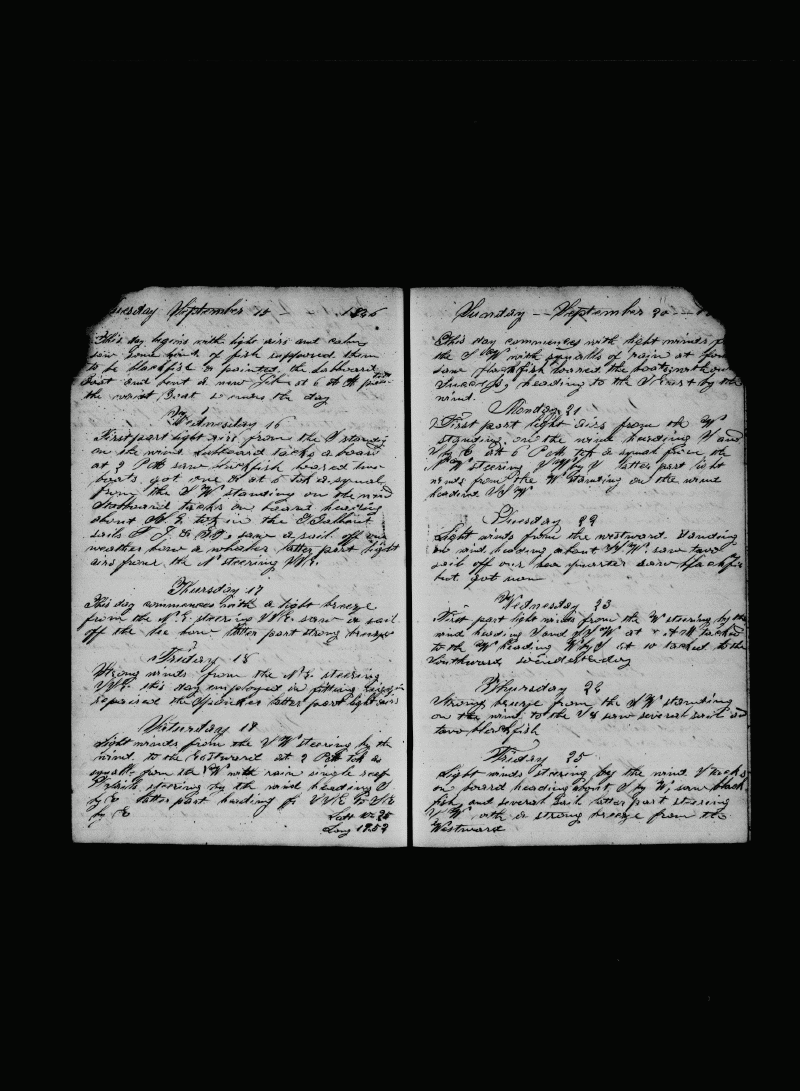 Tuesday September 15 - - 1846
This day begins with light airs and calm
saw some kind of fish supposed them
to be blackfish painted the Labboard
Boat and bent a new Jib at 6 PM
the waist Boat so ends the day
Wednesday 16
First part light airs from the S standing
on the wind Labboard tacks aboard
at 2 PM saw blackfish lowered two
boats got one at 6 took a squal
from the S W standing on the wind
Starboard tacks on board heading
about took in the Gallant
sails saw a sail off our
weather bow a whaler latter part light
airs from the N steering
Thursday 17
This day commences with a light breeze
from the N E steering saw a sail
off the lee bow latter part strong breezes
Friday 18
Strong winds from the N E steering
this day employed in fitting
repaired the latter part light airs
Saturday 19
Light winds from the S W steering by the
wind to the Eastward at 2 PM took a
squall from the W with rain single reef
steering by the wind heading S
by E latter part heading
by E Latt 42.25
Long 19.52
Sunday - September 20 -
This day commences with light winds
the S W with squalls of rain at four
saw blackfish lowered the boats without
success, heading to the by the
wind.
Monday 21
First part light airs from the W
standing on the wind heading S and
S by E at 6 PM took a squal from the
steering latter part light
winds from the W standing on the wind
heading
Tuesday 22
Light winds from the westward standing
on wind heading about saw two
sail off our lee quarter saw blackfish
but got non
Wednesday 23
First part light winds from the W steering by the
wind heading S and at AM tacked
to the W heading W by at 10 tacked to the
Southward so ends the day
Thursday 24
Strong breeze from the standing
on the wind to the saw several sail and
two blackfish
Friday 25
Light winds steering by the wind tacks
on board heading about S by W, saw black
fish and several sail latter part steering
with a strong breeze from the
Westward